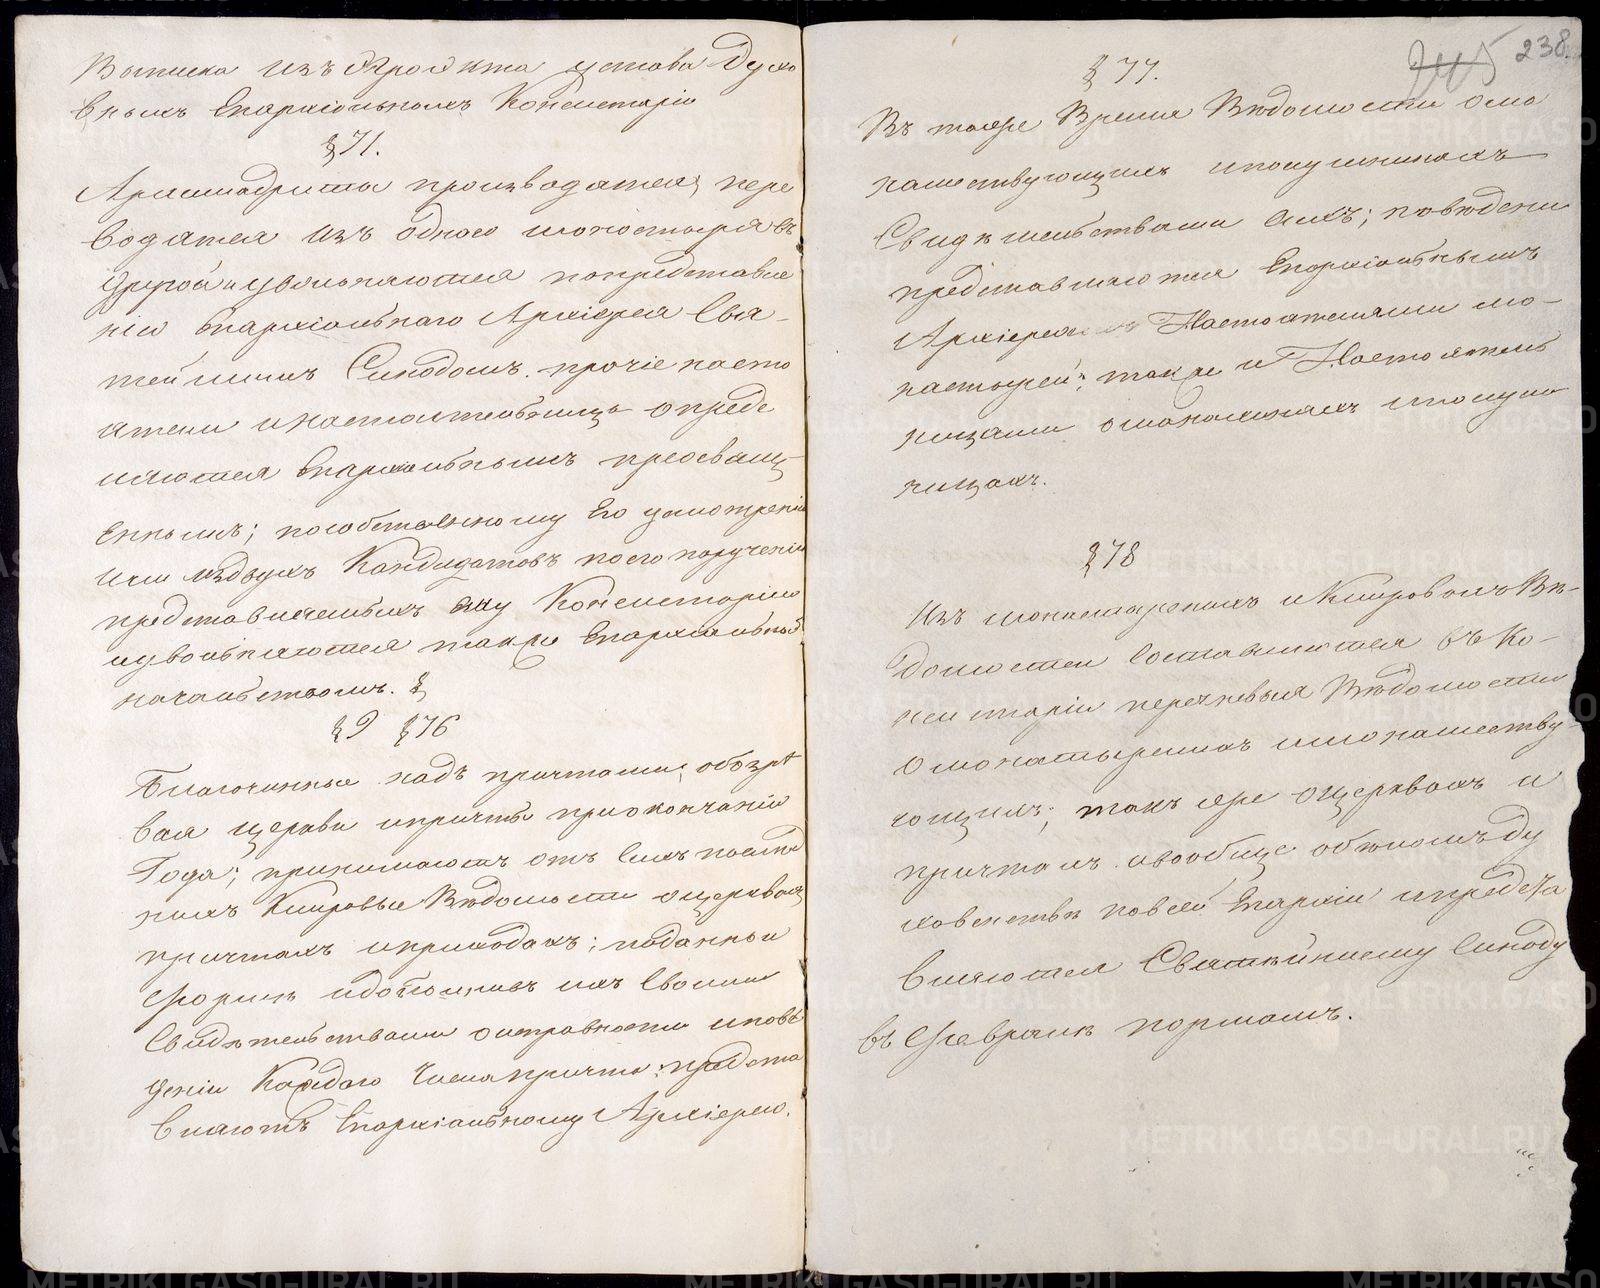 Выписка изъ Проэкта устава Духо
вныхъ Епархіальныхъ Консисторіи
§ 71.
Архимадрита производятся, пере
водятся изъ одного моностыря въ
другой и увольняются попредставле
нію Епархіальнаго Архіерея Свя-
тейшимъ Синодомъ. прочіе насто
ятели инастоятельницы опреде
ляются Епархиальнымъ преосвящ-
еннымъ; пособственному Его усмотренію
или издвухъ Кандидатовъ поего порученію
представляемыхъ ему Консисторіею
иувольняются также Епархиальнымъ
начальствомъ. §
§ 9 § 76
Благочинные надъ причтами, обозре
вая церкви ипричты приокончаніи
Года; принимаютъ отъ сихъ послед
нихъ Клировые Вѣдомости оцерквахъ
причтахъ иприходахъ; поданной
Форме идополнивъ ихъ Своими
Свидѣтельствами оисправности иповѣ
деніи Каждаго Члена причта: предста
вляютъ Епархіальному Архіерею.
238.
§ 77.
Въ тоже Время Вѣдомости омо
нашествующихъ ипослушникахъ
Свидѣтельствами оихъ; поведеніи
представляются Епархиальнымъ
Архіереямъ Настоятелями мо-
настырей; также и Настоятель
ницами омонахиняхъ ипослуш
ницахъ.
§ 78
Изъ монастырскихъ иКлировыхъ Вѣ-
домостей Составляются въ Ко-
нсисторіи перечневыя Вѣдомости
омонастыряхъ имонашеству
ющихъ; такъ же оцерквахъ и
причтахъ ивообще обѣломъ ду
ховенствѣ повсей Епархіи ипредста
вляются Святѣйшему Синоду
въ Февралѣ мѣсяцѣ.